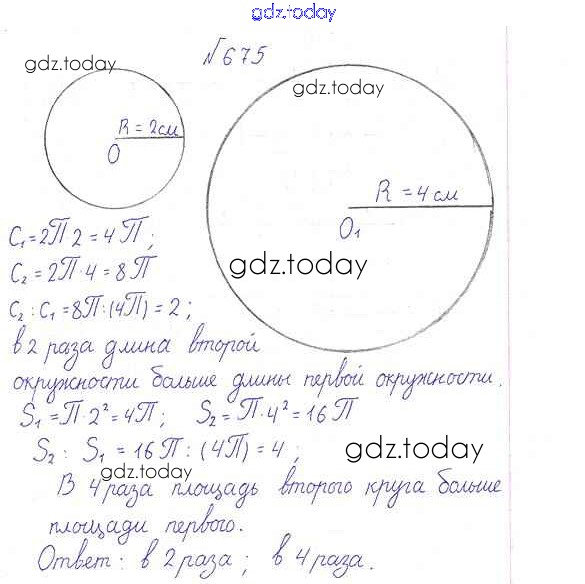 gdz.today
№675
gdz.today
gdz.today
R = 2см
O
R = 4 см
O₁
C₁ = 2П 2 = 4 П;
gdz.today
C₂ = 2П · 4 = 8П
C₂ : C₁ = 8П : (4П) = 2;
в 2 раза длина второй
окружности больше длины первой окружности.
S₁ = П · 2² = 4П; S₂ = П · 4² = 16 П
S₂ : S₁ = 16 П : (4П) = 4;
gdz.today
gdz.today
В 4 раза площадь второго круга больше
площади первого.
Ответ: в 2 раза; в 4 раза.